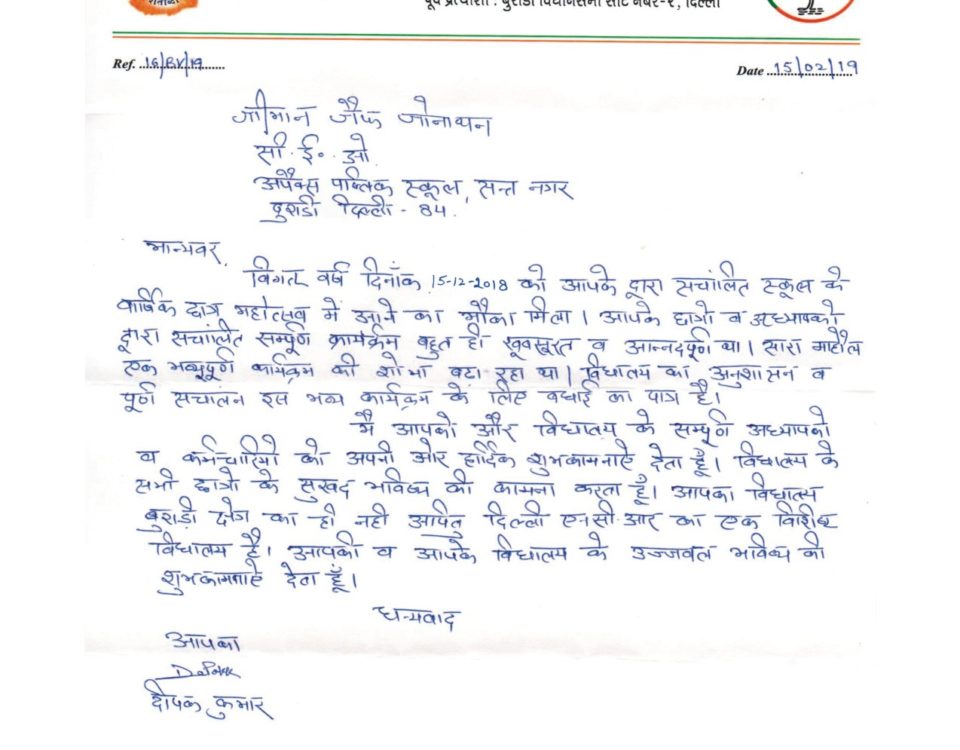 पूर्व प्रत्याशी : बुराडी विधानसभा सीट नंबर-२, दिल्ली
Ref. 16/BV/19
Date 15/02/19
श्रीमान जैफ जोनाथन
सी. ई. ओ
अपैक्स पब्लिक स्कूल, सन्त नगर
बुराडी दिल्ली - 84.
मान्यवर,
विगत वर्ष दिनाँक 15-12-2018 को आपके द्वारा सचांलित स्कूल के
वार्षिक छात्र महोत्सव में आने का मौका मिला। आपके छात्रो व अध्यापको
द्वारा सचांलित सम्पूर्ण कार्यक्रम बहुत ही खूबसूरत व आन्नदपूर्ण था। सारा माहौल
एक भव्यपूर्ण कार्यक्रम की शोभा बढा रहा था। विधालय का अनुशासन व
पूर्ण सचांलन इस भव्य कार्यक्रम के लिए बधाई का पात्र है।
मै आपको और विधालय के सम्पूर्ण अध्यापको
व कर्मचारियो को अपनी ओर हार्दिक शुभकामनाऐ देता हूँ। विधालय के
सभी छात्रो के सुखद भविष्य की कामना करता हूँ। आपका विधालय
बुराडी क्षेत्र का ही नही अपितु दिल्ली एन.सी.आर का एक विशिष्ठ
विधालय है। आपको व आपके विधालय के उज्जवल भविष्य की
शुभकामनाऐ देता हूँ।
धन्यवाद
आपका
Deepak
दीपक कुमार